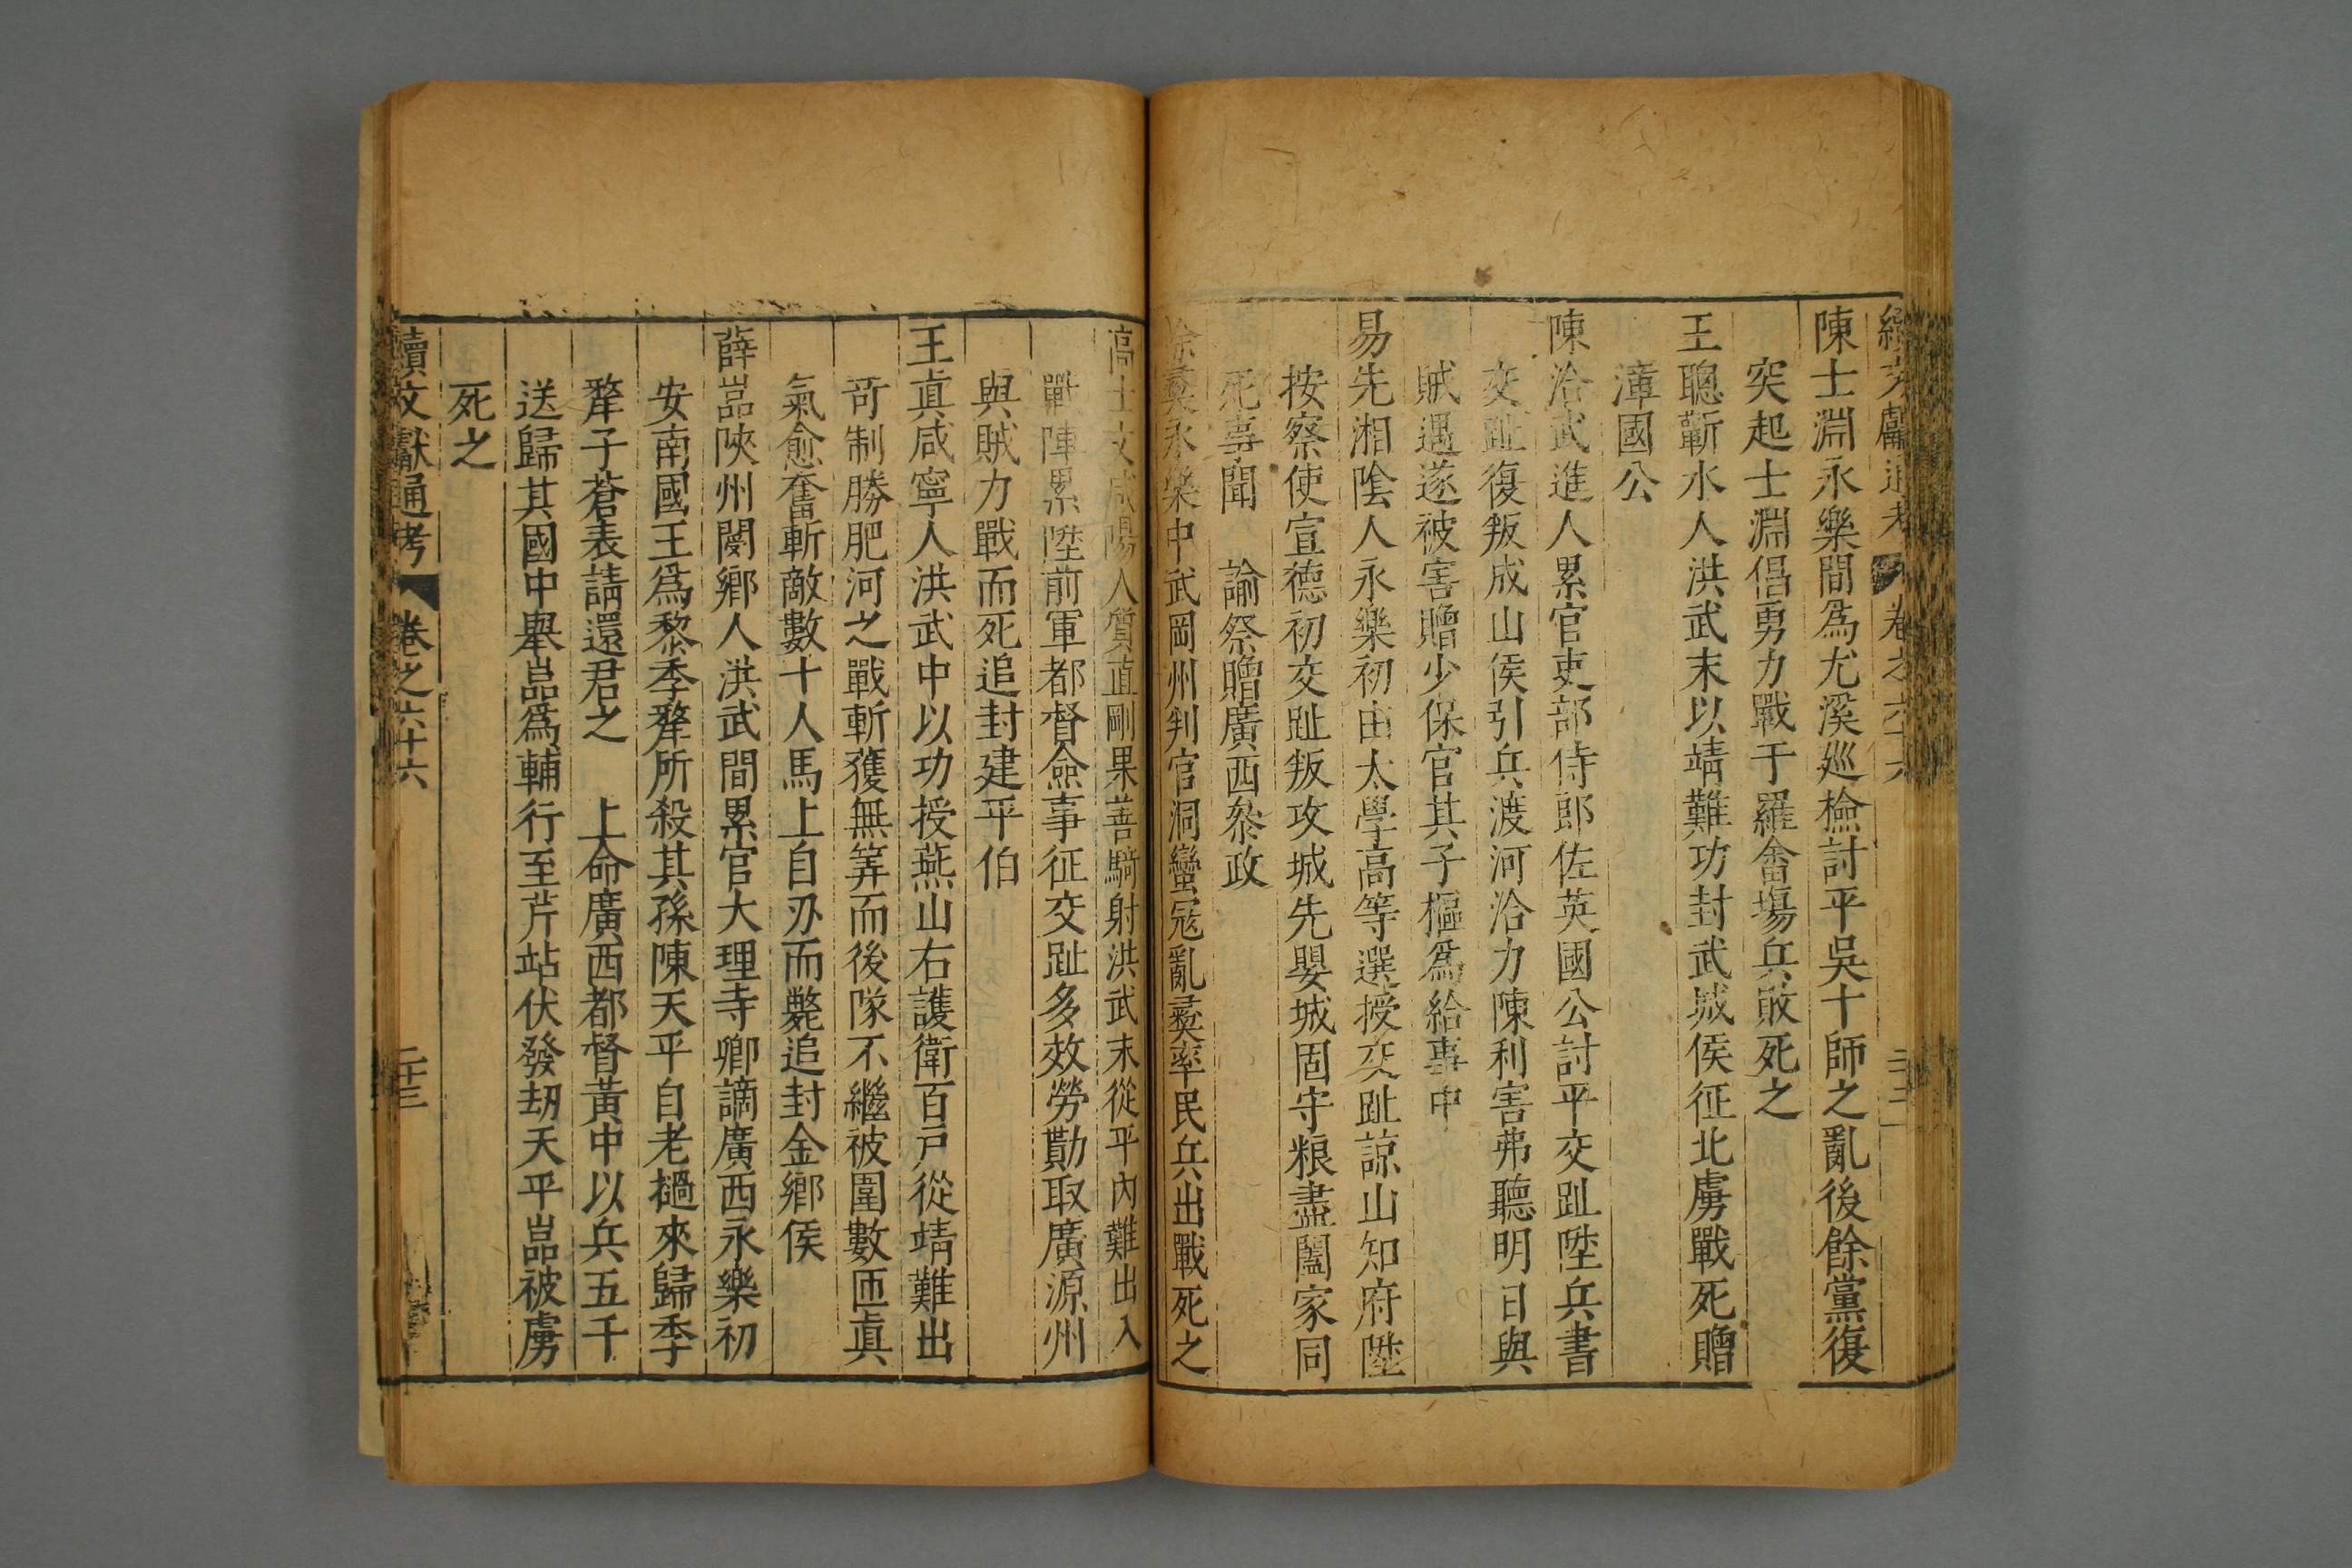 續文獻通考 卷之六十六
陳士淵永樂間爲尤溪巡檢討平吳十師之亂後餘黨復
突起士淵倡勇力戰于羅畬塲兵敗死之
王聰蘄水人洪武末以靖難功封武城侯征北虜戰死贈
漳國公
陳洽武進人累官吏部侍郎佐英國公討平交趾陞兵書
交趾復叛成山侯引兵渡河洽力陳利害弗聽明日與
賊遇遂被害贈少保官其子樞爲給事中
易先湘陰人永樂初由太學高等選授交趾諒山知府陞
按察使宣德初交趾叛攻城先嬰城固守粮盡闔家同
死事聞 諭祭贈廣西叅政
彛永樂中武岡州判官洞蠻冦亂彛率民兵出戰死之
高士文咸陽人質直剛果善騎射洪武末從平內難出入
戰陣累陞前軍都督僉事征交趾多效勞勩取廣源州
與賊力戰而死追封建平伯
王眞咸寧人洪武中以功授燕山右護衛百戶從靖難出
奇制勝肥河之戰斬獲無筭而後隊不繼被圍數匝眞
氣愈奮斬敵數十人馬上自刃而斃追封金鄉侯
薛嵓陝州閿鄉人洪武間累官大理寺卿謫廣西永樂初
安南國王爲黎季犛所殺其孫陳天平自老撾來歸季
犛子蒼表請還君之 上命廣西都督黃中以兵五千
送歸其國中舉嵓爲輔行至芹站伏發刼天平嵓被虜
死之
續文獻通考 卷之六十六 二十三